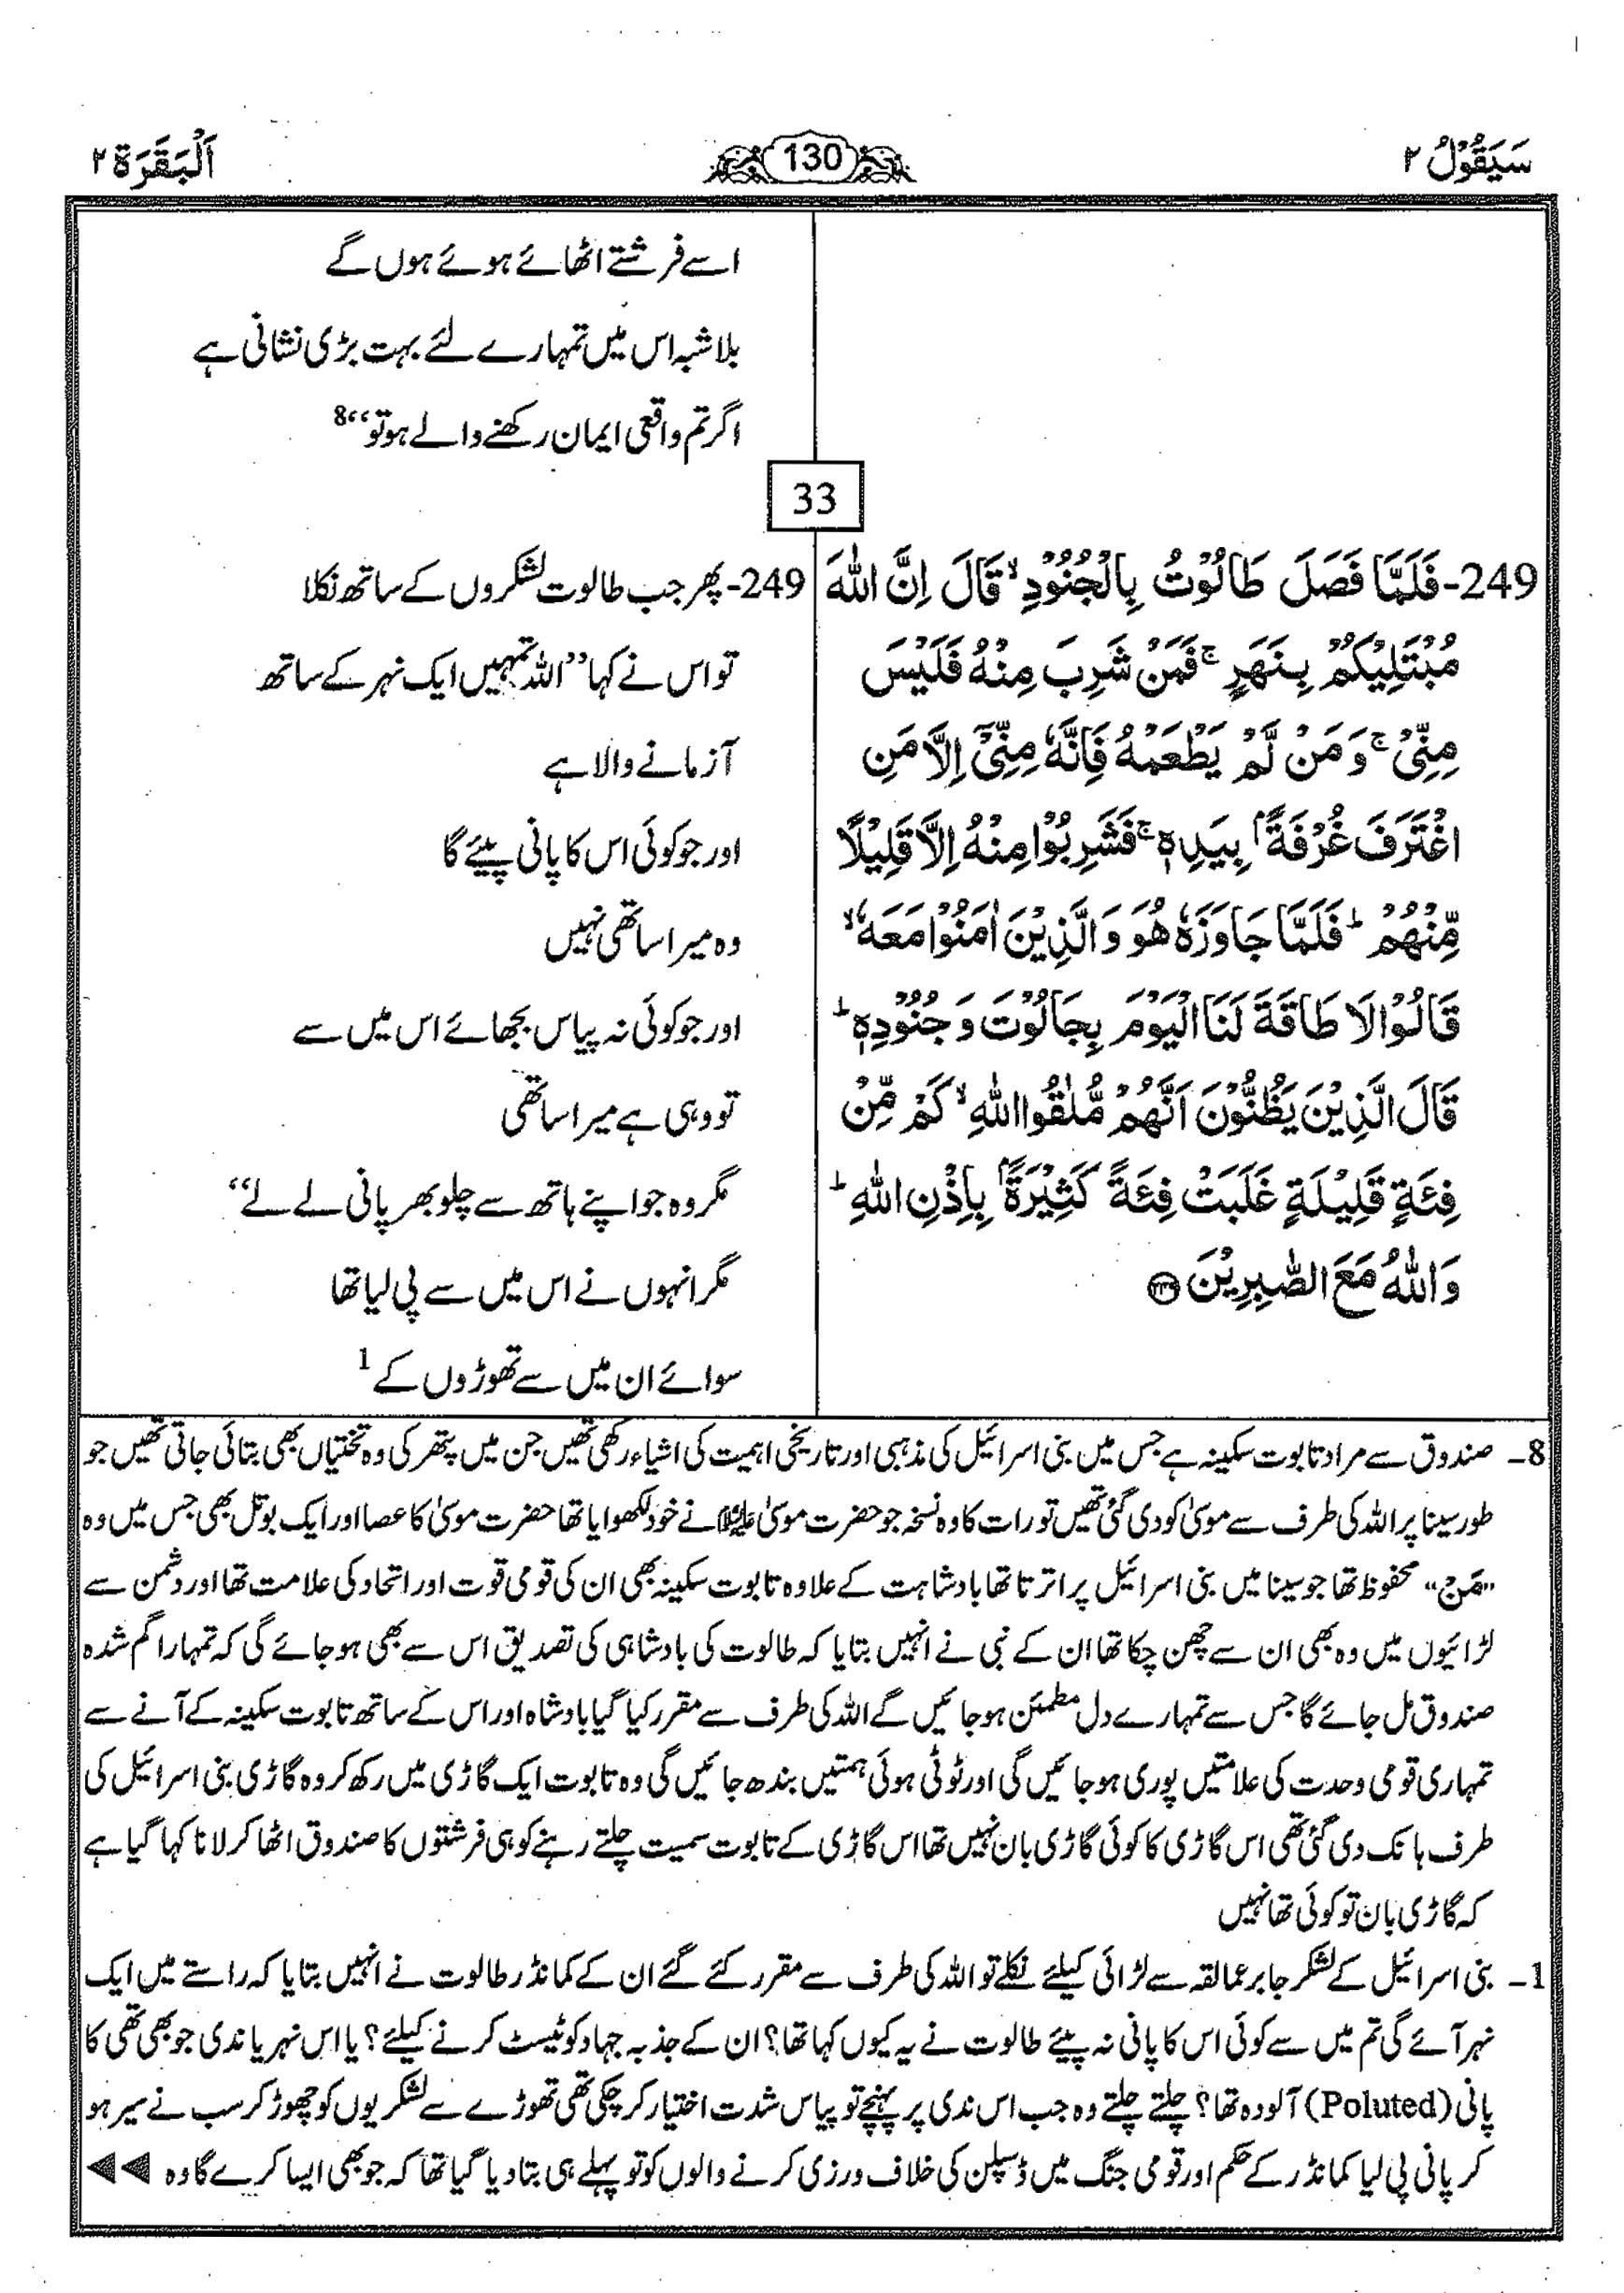 سَيَقُوْلُ ٢
130
اَلْبَقَرَة ٢
اسے فرشتے اٹھائے ہوئے ہوں گے
بلا شبہ اس میں تمہارے لئے بہت بڑی نشانی ہے
اگر تم واقعی ایمان رکھنے والے ہو تو‘‘8
33
249-فَلَمَّا فَصَلَ طَالُوْتُ بِالْجُنُوْدِ ۙ قَالَ اِنَّ اللّٰهَ
مُبْتَلِيْكُمْ بِنَهَرٍ ۚ فَمَنْ شَرِبَ مِنْهُ فَلَيْسَ
مِنِّيْ ۚ وَمَنْ لَّمْ يَطْعَمْهُ فَاِنَّهٗ مِنِّيْٓ اِلَّا مَنِ
اغْتَرَفَ غُرْفَةًۢ بِيَدِهٖ ۚ فَشَرِبُوْا مِنْهُ اِلَّا قَلِيْلًا
مِّنْهُمْ ؕ فَلَمَّا جَاوَزَهٗ هُوَ وَالَّذِيْنَ اٰمَنُوْا مَعَهٗ ۙ
قَالُوْا لَا طَاقَةَ لَنَا الْيَوْمَ بِجَالُوْتَ وَجُنُوْدِهٖ ؕ
قَالَ الَّذِيْنَ يَظُنُّوْنَ اَنَّهُمْ مُّلٰقُوا اللّٰهِ ۙ كَمْ مِّنْ
فِئَةٍ قَلِيْلَةٍ غَلَبَتْ فِئَةً كَثِيْرَةًۢ بِاِذْنِ اللّٰهِ ؕ
وَاللّٰهُ مَعَ الصّٰبِرِيْنَ ۝٢٤٩
249-پھر جب طالوت لشکروں کے ساتھ نکلا
تو اس نے کہا ’’اللہ تمہیں ایک نہر کے ساتھ
آزمانے والا ہے
اور جو کوئی اس کا پانی پیئے گا
وہ میرا ساتھی نہیں
اور جو کوئی نہ پیاس بجھائے اس میں سے
تو وہی ہے میرا ساتھی
مگر وہ جو اپنے ہاتھ سے چلو بھر پانی لے لے‘‘
مگر انہوں نے اس میں سے پی لیا تھا
سوائے ان میں سے تھوڑوں کے 1
8- صندوق سے مراد تابوت سکینہ ہے جس میں بنی اسرائیل کی مذہبی اور تاریخی اہمیت کی اشیاء رکھی تھیں جن میں پتھر کی وہ تختیاں بھی بتائی جاتی تھیں جو
طور سینا پر اللہ کی طرف سے موسیٰ کو دی گئی تھیں تورات کا وہ نسخہ جو حضرت موسیٰ علیہ السلام نے خود لکھوایا تھا حضرت موسیٰ کا عصا اور ایک بوتل بھی جس میں وہ
’’مَن‘‘ محفوظ تھا جو سینا میں بنی اسرائیل پر اترتا تھا بادشاہت کے علاوہ تابوت سکینہ بھی ان کی قومی قوت اور اتحاد کی علامت تھا اور دشمن سے
لڑائیوں میں وہ بھی ان سے چھن چکا تھا ان کے نبی نے انہیں بتایا کہ طالوت کی بادشاہی کی تصدیق اس سے بھی ہو جائے گی کہ تمہارا گم شدہ
صندوق مل جائے گا جس سے تمہارے دل مطمئن ہو جائیں گے اللہ کی طرف سے مقرر کیا گیا بادشاہ اور اس کے ساتھ تابوت سکینہ کے آنے سے
تمہاری قومی وحدت کی علامتیں پوری ہو جائیں گی اور ٹوٹی ہوئی ہمتیں بندھ جائیں گی وہ تابوت ایک گاڑی میں رکھ کر وہ گاڑی بنی اسرائیل کی
طرف ہانک دی گئی تھی اس گاڑی کا کوئی گاڑی بان نہیں تھا اس گاڑی کے تابوت سمیت چلتے رہنے کو ہی فرشتوں کا صندوق اٹھا کر لانا کہا گیا ہے
کہ گاڑی بان تو کوئی تھا نہیں
1- بنی اسرائیل کے لشکر جابر عمالقہ سے لڑائی کیلئے نکلے تو اللہ کی طرف سے مقرر کئے گئے ان کے کمانڈر طالوت نے انہیں بتایا کہ راستے میں ایک
نہر آئے گی تم میں سے کوئی اس کا پانی نہ پیئے طالوت نے یہ کیوں کہا تھا؟ ان کے جذبہ جہاد کو ٹیسٹ کرنے کیلئے؟ یا اس نہر یا ندی جو بھی تھی کا
پانی (Poluted) آلودہ تھا؟ چلتے چلتے وہ جب اس ندی پر پہنچے تو پیاس شدت اختیار کر چکی تھی تھوڑے سے لشکریوں کو چھوڑ کر سب نے سیر ہو
کر پانی پی لیا کمانڈر کے حکم اور قومی جنگ میں ڈسپلن کی خلاف ورزی کرنے والوں کو تو پہلے ہی بتا دیا گیا تھا کہ جو بھی ایسا کرے گا وہ ◄◄